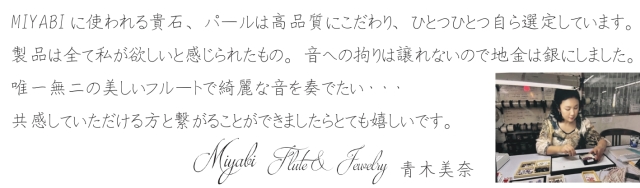 MIYABIに使われる貴石、パールは高品質にこだわり、ひとつひとつ自ら選定しています。
製品は全て私が欲しいと感じられたもの。音への拘りは譲れないので地金は銀にしました。
唯一無二の美しいフルートで綺麗な音を奏でたい・・・
共感していただける方と繋がることができましたらとても嬉しいです。
Miyabi Flute & Jewelry 青木美奈